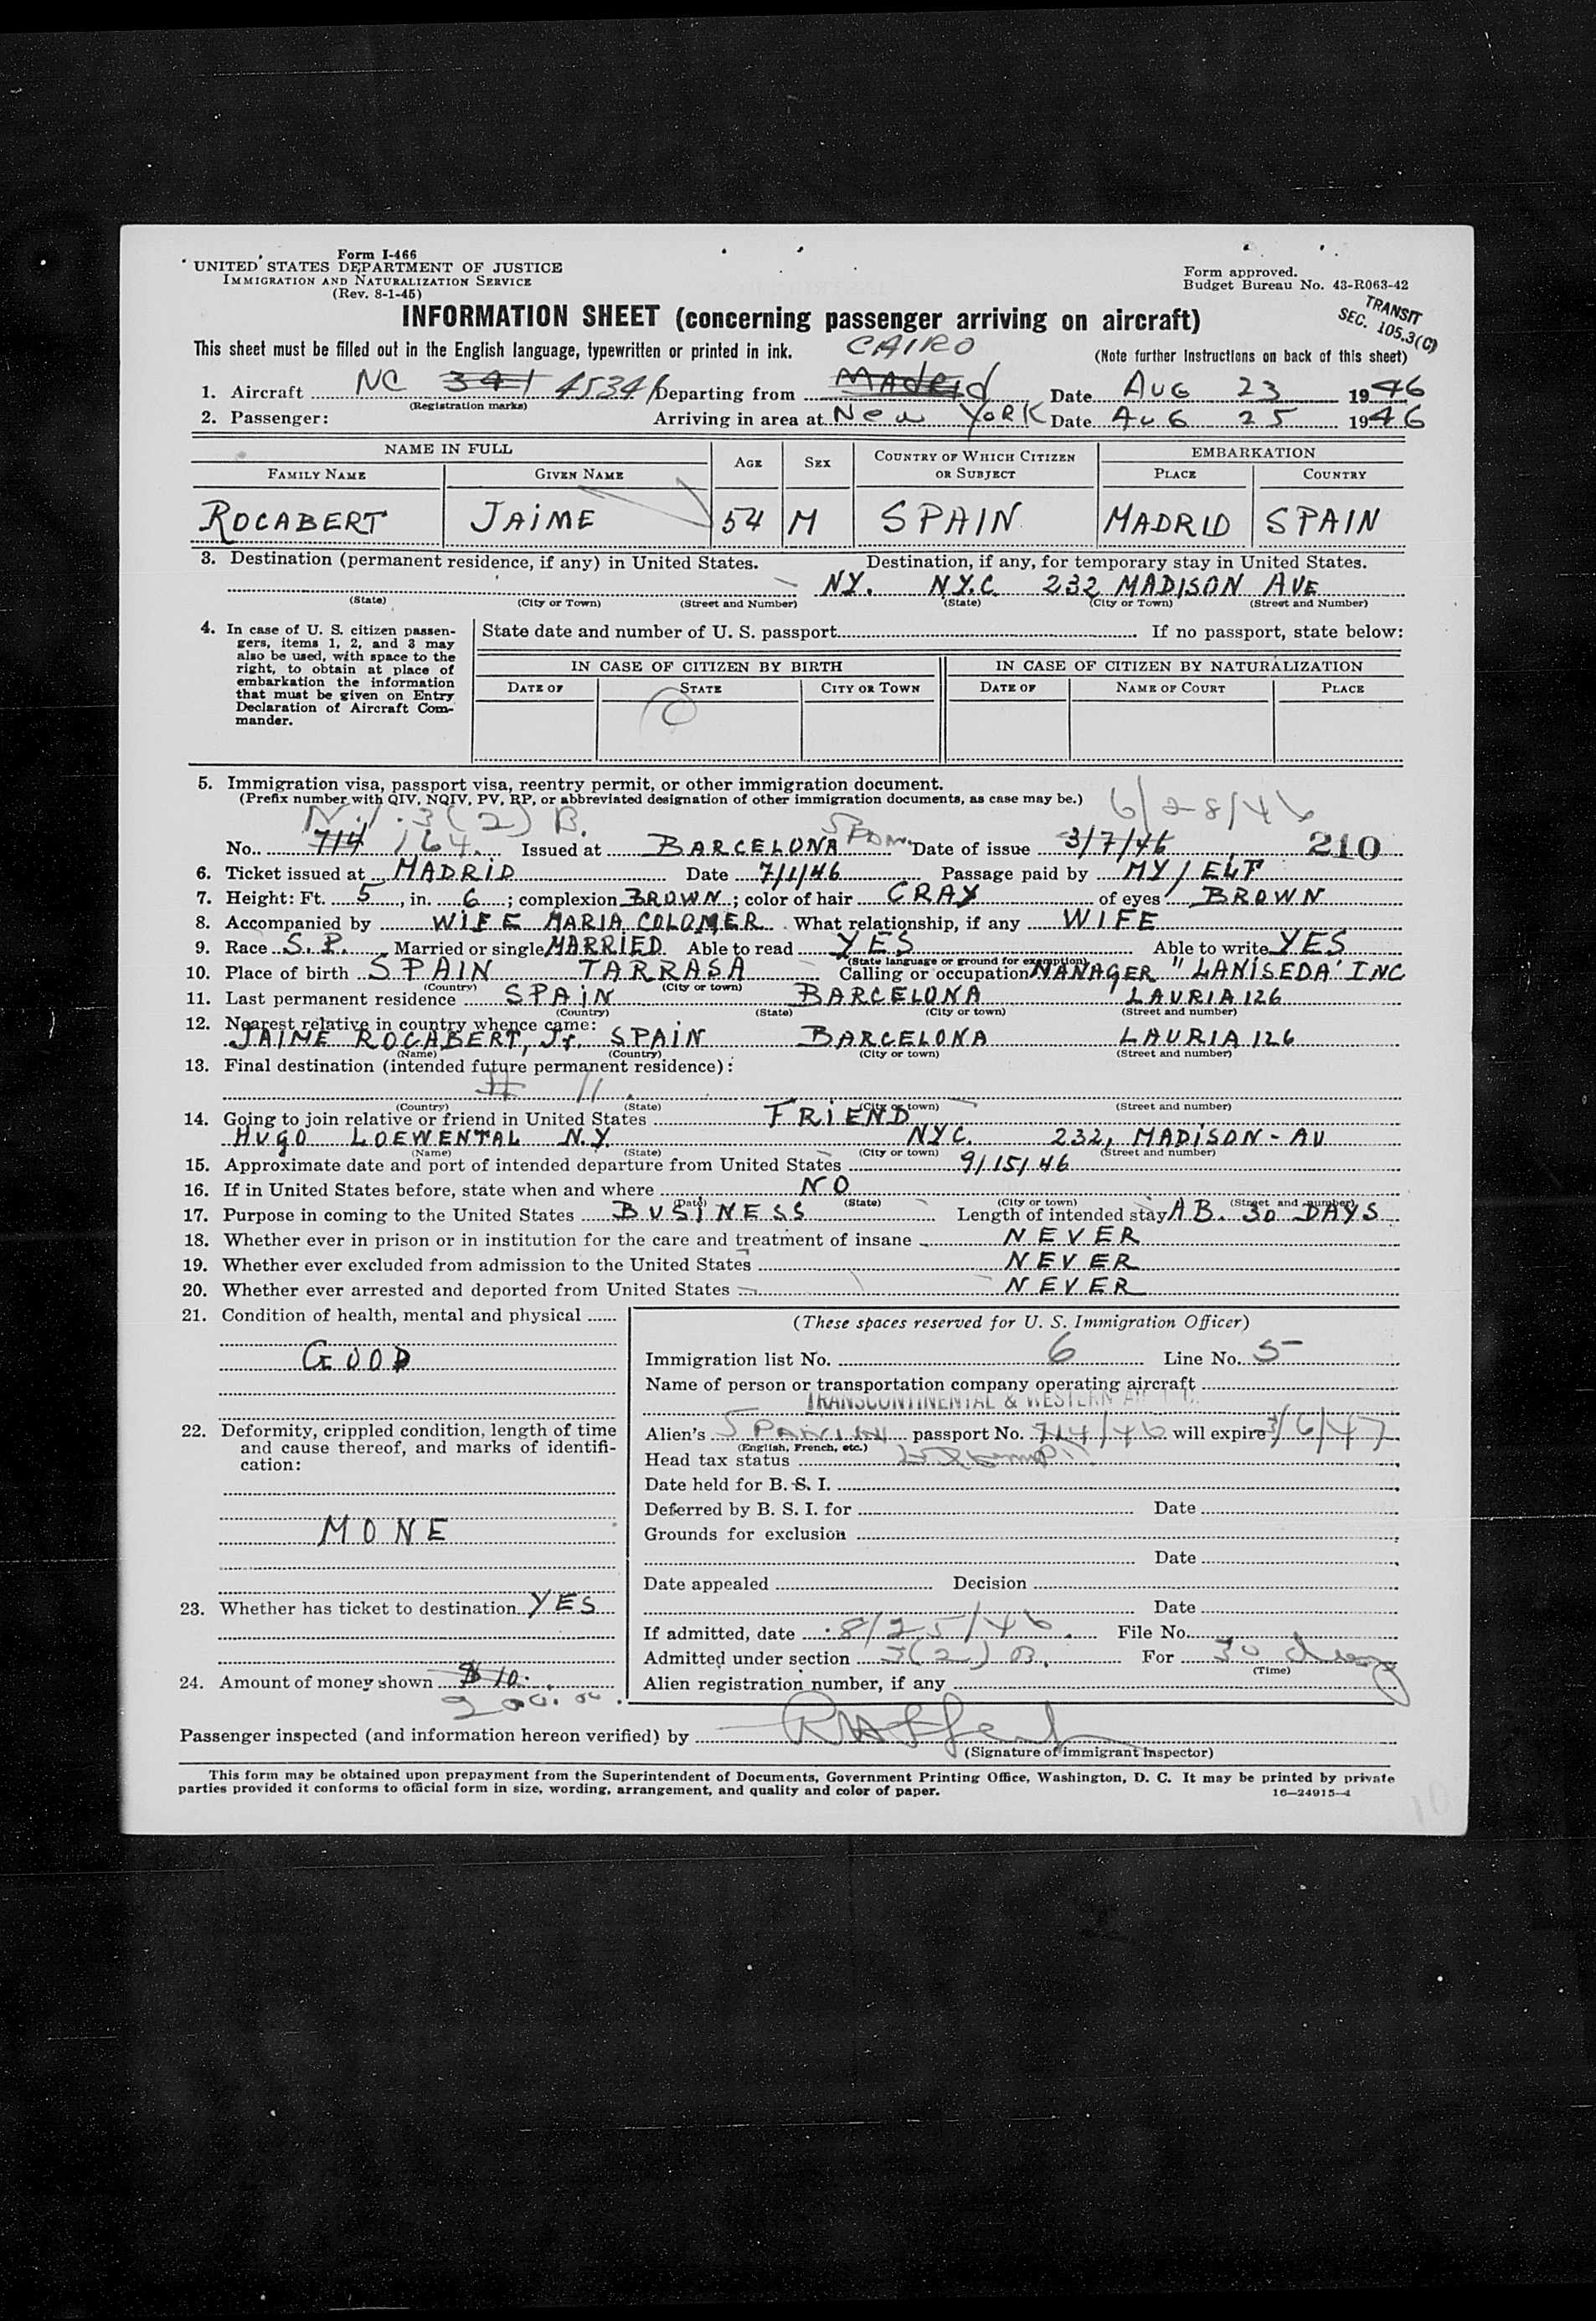 Form I-466
UNITED STATES DEPARTMENT OF JUSTICE
IMMIGRATION AND NATURALIZATION SERVICE
(Rev. 8-1-45)
Form approved.
Budget Bureau No. 43-R063-42
TRANSIT
SEC. 105.3(C)
INFORMATION SHEET (concerning passenger arriving on aircraft)
This sheet must be filled out in the English language, typewritten or printed in ink.
(Note further instructions on back of this sheet)
CAIRO
1. Aircraft NC 341 45346 Departing from Madrid Date AUG 23 1946
(Registration marks)
2. Passenger: Arriving in area at New York Date AUG 25 1946
NAME IN FULL AGE SEX COUNTRY OF WHICH CITIZEN OR SUBJECT EMBARKATION
FAMILY NAME GIVEN NAME PLACE COUNTRY
ROCABERT JAIME 54 M SPAIN MADRID SPAIN
3. Destination (permanent residence, if any) in United States. Destination, if any, for temporary stay in United States.
NY. N.Y.C 232 MADISON AVE
(State) (City or Town) (Street and Number) (State) (City or Town) (Street and Number)
4. In case of U. S. citizen passen-
gers, items 1, 2, and 3 may
also be used, with space to the
right, to obtain at place of
embarkation the information
that must be given on Entry
Declaration of Aircraft Com-
mander.
State date and number of U. S. passport If no passport, state below:
IN CASE OF CITIZEN BY BIRTH IN CASE OF CITIZEN BY NATURALIZATION
DATE OF STATE CITY OR TOWN DATE OF NAME OF COURT PLACE
5. Immigration visa, passport visa, reentry permit, or other immigration document.
(Prefix number with QIV, NQIV, PV, RP, or abbreviated designation of other immigration documents, as case may be.)
3(2)B. 6/28/46
No. 714 164. Issued at BARCELONA Spain Date of issue 3/7/46 210
6. Ticket issued at MADRID Date 7/1/46 Passage paid by MY/ELF
7. Height: Ft. 5, in. 6; complexion BROWN; color of hair GRAY of eyes BROWN
8. Accompanied by WIFE MARIA COLOMER What relationship, if any WIFE
9. Race S.P. Married or single MARRIED Able to read YES Able to write YES
(State language or ground for exemption)
10. Place of birth SPAIN TARRASA Calling or occupation MANAGER "LANISEDA" INC
(Country) (City or town)
11. Last permanent residence SPAIN BARCELONA LAURIA 126
(Country) (State) (City or town) (Street and number)
12. Nearest relative in country whence came:
JAIME ROCABERT, Jr. SPAIN BARCELONA LAURIA 126
(Name) (Country) (City or town) (Street and number)
13. Final destination (intended future permanent residence):
# 11
(Country) (State) (City or town) (Street and number)
14. Going to join relative or friend in United States FRIEND
HUGO LOEWENTAL N.Y. NYC. 232, MADISON-AV
(Name) (State) (City or town) (Street and number)
15. Approximate date and port of intended departure from United States 9/15/46
16. If in United States before, state when and where NO
(Date) (State) (City or town) (Street and number)
17. Purpose in coming to the United States BUSINESS Length of intended stay AB. 30 DAYS
18. Whether ever in prison or in institution for the care and treatment of insane NEVER
19. Whether ever excluded from admission to the United States NEVER
20. Whether ever arrested and deported from United States NEVER
21. Condition of health, mental and physical
GOOD
22. Deformity, crippled condition, length of time
and cause thereof, and marks of identifi-
cation:
MONE
23. Whether has ticket to destination YES
24. Amount of money shown $10.
200.00.
(These spaces reserved for U. S. Immigration Officer)
Immigration list No. 6 Line No. 5
Name of person or transportation company operating aircraft
TRANSCONTINENTAL & WESTERN AIR
Alien's Spanish passport No. 714/46 will expire 3/6/47
(English, French, etc.)
Head tax status
Date held for B. S. I.
Deferred by B. S. I. for Date
Grounds for exclusion
Date
Date appealed Decision
Date
If admitted, date 8/25/46. File No.
Admitted under section 3(2)B. For 30 days
(Time)
Alien registration number, if any
Passenger inspected (and information hereon verified) by
(Signature of immigrant inspector)
This form may be obtained upon prepayment from the Superintendent of Documents, Government Printing Office, Washington, D. C. It may be printed by private
parties provided it conforms to official form in size, wording, arrangement, and quality and color of paper.
16—24915-4
10